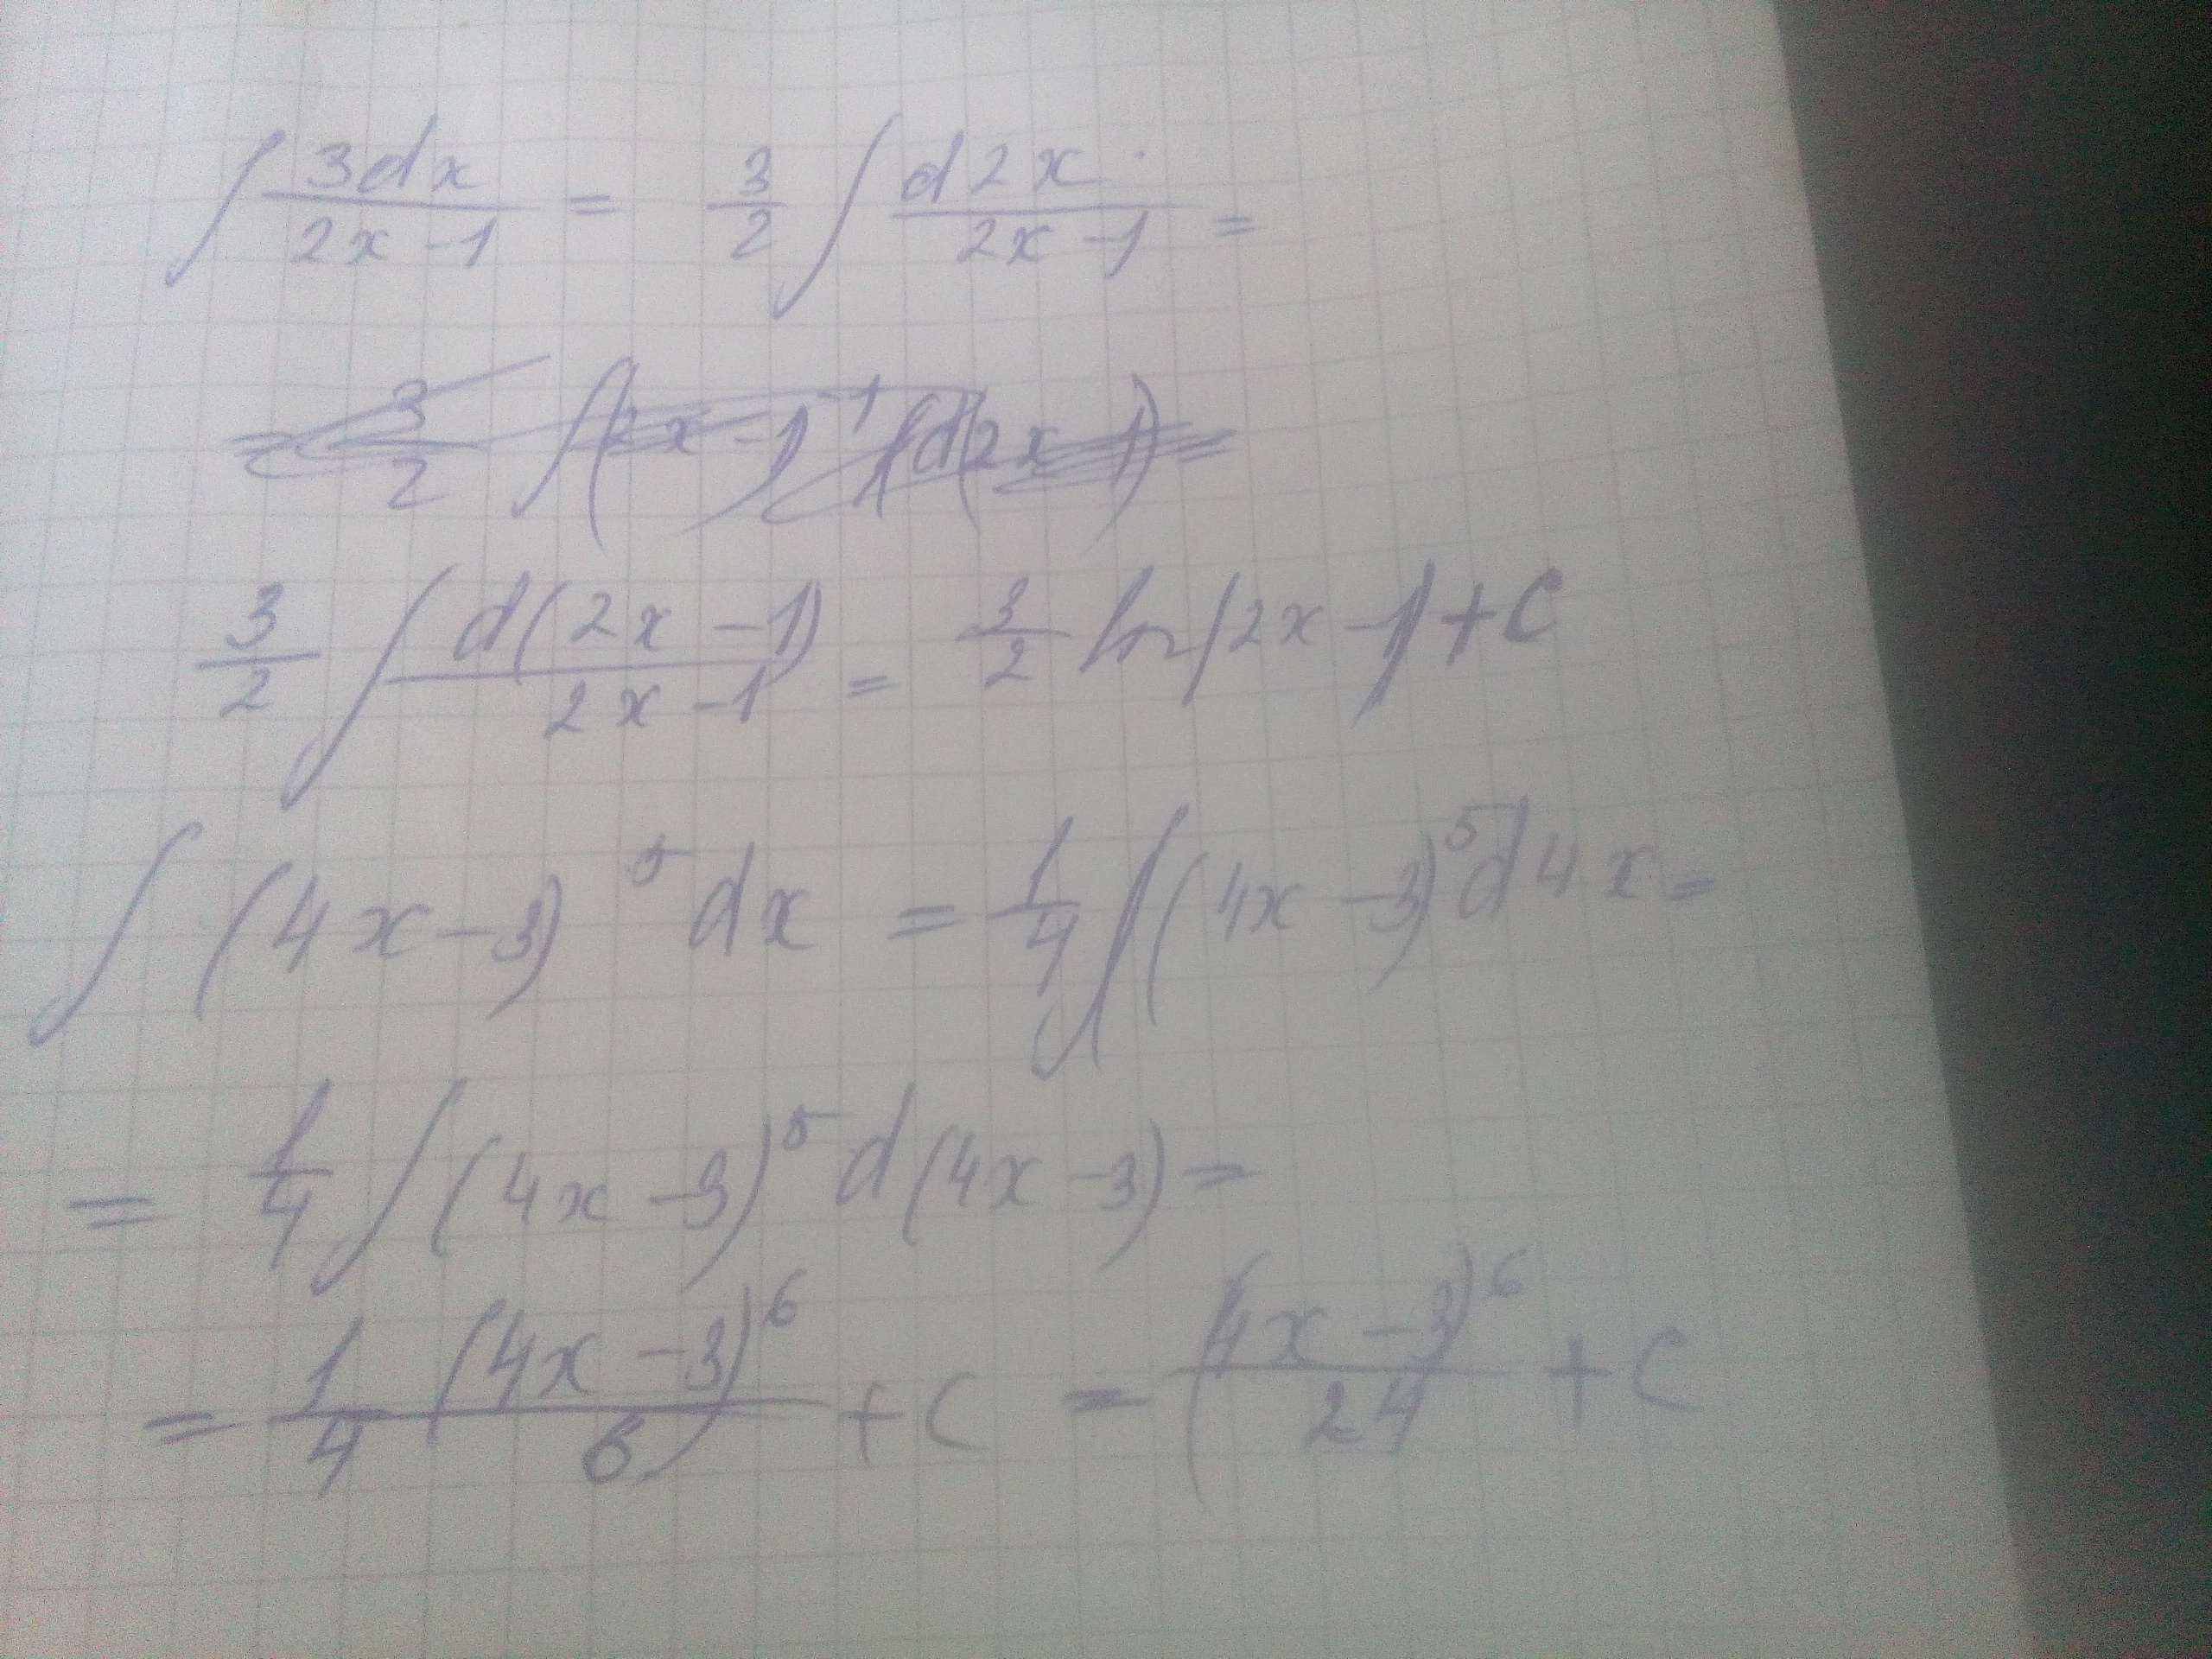 ∫ 3dx/(2x-1) = 3/2 ∫ d2x/(2x-1) =
= 3/2 ∫(2x-1)^-1 d(2x-1) =
3/2 ∫ d(2x-1)/(2x-1) = 3/2 ln|2x-1|+C
∫ (4x-3)^5 dx = 1/4 ∫(4x-3)^5 d4x =
= 1/4 ∫(4x-3)^5 d(4x-3) =
= 1/4 (4x-3)^6/6 + C = (4x-3)^6/24 + C